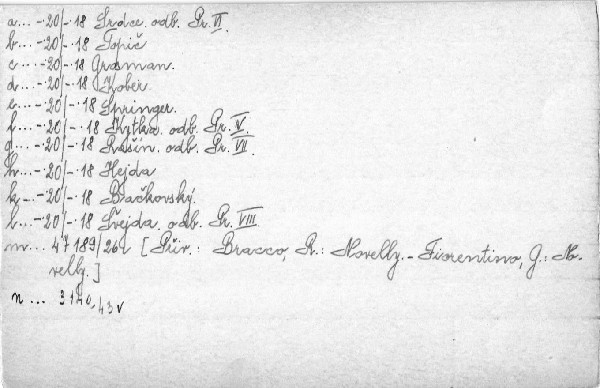 a... -20/-18 Srdce. odb. Pr. VI.
b... -20/-18 Topič
c... -20/-18 Grosman.
d... -20/-18 Kober.
e... -20/-18 Springer.
f... -20/-18 Kytka. odb. Pr. V.
g... -20/-18 Rašín. odb. Pr. VII.
h... -20/-18 Hejda
k... -20/-18 Bačkovský.
l... -20/-18 Švejda. odb. Pr. VIII
m... 47189/26 [ Přív.: Bracco, R.: Novelly. - Fiorentino, G.: No-
velly. ]
n... 3140,43 v